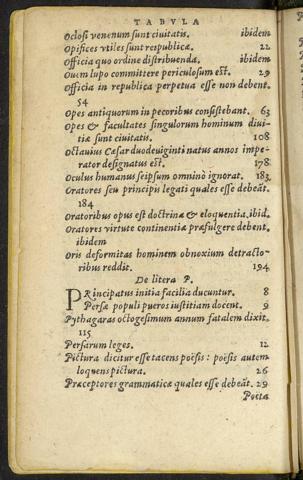 TABVLA
Oclosi venenum sunt ciuitatis. ibidem
Opifices vtiles sunt respublicæ. 22
Officia quo ordine distribuenda. ibidem
Ouem lupo committere periculosum est. 29
Officia in republica perpetua esse non debent.
54
Opes antiquorum in pecoribus consistebant. 63
Opes & facultates singulorum hominum diui-
tiæ sunt ciuitatis. 108
Octauius Cæsar duodeuiginti natus annos impe-
rator designatus est. 178
Oculus humanus seipsum omninò ignorat. 183.
Oratores seu principis legati quales esse debeāt.
184
Oratoribus opus est doctrina & eloquentia. ibid.
Oratores virtute continentiæ præfulgere debent.
ibidem
Oris deformitas hominem obnoxium detracto-
ribus reddit. 194
De litera P.
PRincipatus initia facilia ducuntur. 8
Persæ populi pueros iustitiam docent. 9
Pythagaras octogesimum annum fatalem dixit.
115
Persarum leges. 12
Pictura dicitur esse tacens poësis: poësis autem
loquens pictura. 26
Præceptores grammaticæ quales esse debeāt. 29
Poeta